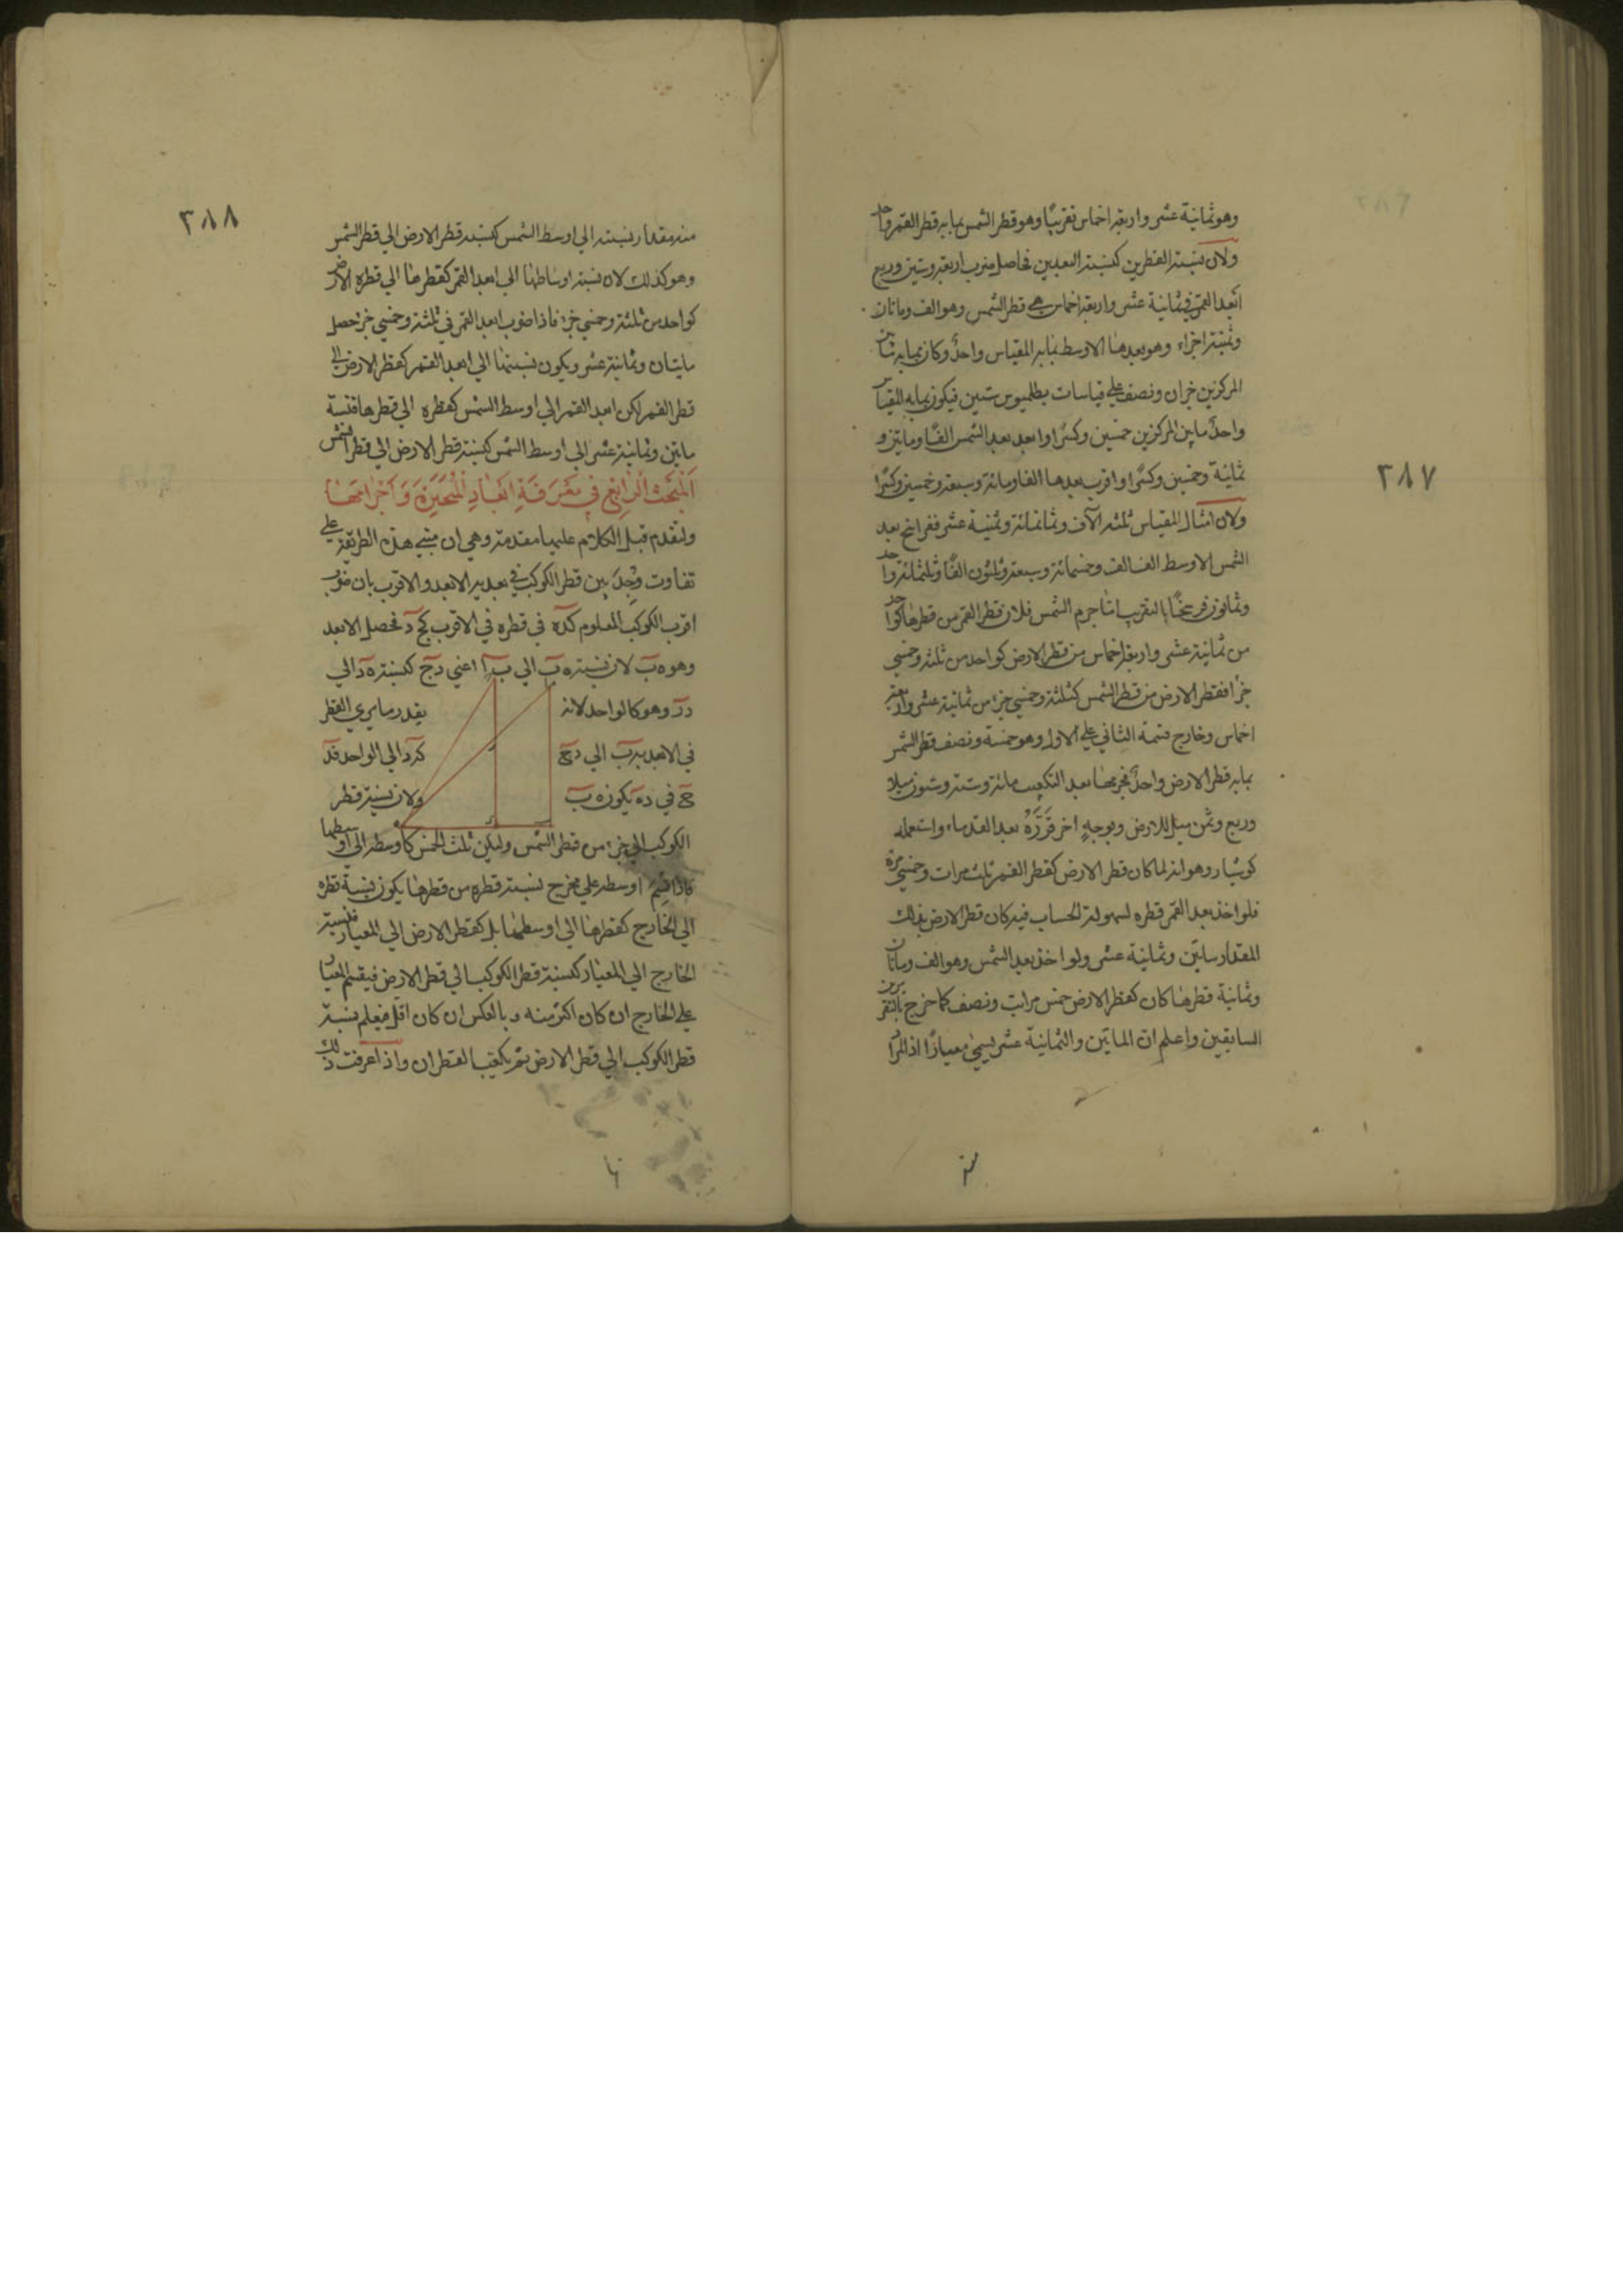 ٣٨٧
وهو ثمانية عشر واربعة اخماس تقريبًا وهو قطر الشمس بما به قطر القمر واحد
ولان نسبة القطرين كنسبة البعدين فحاصل ضرب اربعة وستين وربع
ابعد القمر في ثمانية عشر واربعة اخماس هي قطر الشمس وهو الف ومائتان
وثمنية اجزاء وهو بعدها الاوسط بما به المقياس واحدٌ وكان بما به ما بين
المركزين جزان ونصف علي قياسات بطلميوس ستين فيكون بما به المقياس
واحدٌ ما بين المركزين خمسين وكسرًا وابعد بعد الشمس الفًا ومايتين و
ثمانية وخمسين وكسرًا واقرب بعدها الفا ومائة وسبعة وخمسين وكسرًا
ولان امثال المقياس ثلثة الآف وثمانمائة وثمنية عشر ففراسخ بعد
الشمس الاوسط الف الف وخمسمائة وسبعة وثلثون الفًا وثلثمائة واحد
وثمانون فرسخًا بالتقريب اما جرم الشمس فلان قطر القمر من قطرها كواحد
من ثمانية عشر واربعة اخماس ومن قطر الارض كواحد من ثلثة وخمسي
جزأ فقطر الارض من قطر الشمس كثلثة وخمسي جزء من ثمانية عشر واربعة
اخماس وخارج قسمة الثاني علي الاول وهو خمسة ونصف قطر الشمس
بما به قطر الارض واحدٌ فجرمها بعد التكعيب مائة وستة وستون ميلا
وربع وثمن ميل للارض وبوجهٍ اخر قَرَّرَهُ بعد القدماء واستعمله
كوشيار وهو انه لما كان قطر الارض كقطر القمر ثلث مرات وخمسي مرة
فلو اخذ بعد القمر قطره لسهولة الحساب فيه كان قطر الارض بذلك
المقدار مايتين وثمانية عشر ولو اخذ بعد الشمس وهو الف ومائتان
وثمانية قطرها كان كقطر الارض خمس مرات ونصف كما خرج بالتقريرين
السابقين واعلم ان المايتين والثمانية عشر يسمي معيارًا اذ المراد
٣٨٨
منه مقدار نسبته الي اوسط الشمس كنسبة قطر الارض الي قطر الشمس
وهو كذلك لان نسبة اوساطها الي ابعد القمر كقطرها الي قطره الارض
كواحد من ثلثة وخمسي جزء فاذا ضرب ابعد القمر في ثلثة وخمسي جزء حصل
مايتان وثمانية عشر ويكون نسبتها الي ابعد القمر كقطر الارض الي
قطر القمر لكن ابعد القمر الي اوسط الشمس كقطره الي قطرها فنسبة
مايتين وثمانية عشر الي اوسط الشمس كنسبة قطر الارض الي قطر الشمس
اَلْمَبْحَثُ الرَّابِعُ فِي مَعْرِفَةِ اَبْعَادِ الْمُتَحَيِّرَةِ وَاَجْرَامِهَا
ولنقدم قبل الكلام عليها مقدمة وهي ان مبني هذه الطريقة علي
تفاوت وُجِدَ بين قطر الكوكب في بعديه الابعد والاقرب بان ضرب
اقرب الكوكب المعلوم كده في قطره في الاقرب كج د فحصل الابعد
وهو ه ب لان نسبة ه ب الي ب ا اعني د ج كنسبة ه د الي
د ز وهو كالواحد لانه بقدر ما يري القطر
في الابعد به ب الي د ج كه د الي الواحد فد
ج في د ه يكون ه ب ولان نسبة قطر
الكوكب الي جزء من قطر الشمس وليكن ثلث الخمس كاوسطه الي اوسطها
فاذا قسم اوسطه علي مخرج نسبة قطره من قطرها يكون نسبة قطره
الي الخارج كقطرها الي اوسطها بل كقطر الارض الي المعيار فنسبة
الخارج الي المعيار كنسبة قطر الكوكب الي قطر الارض فيقسم المعيار
علي الخارج ان كان اكثر منه وبالعكس ان كان اقل فيعلم نسبة
قطر الكوكب الي قطر الارض ثم يكعب القطران واذا عرفت ذلك